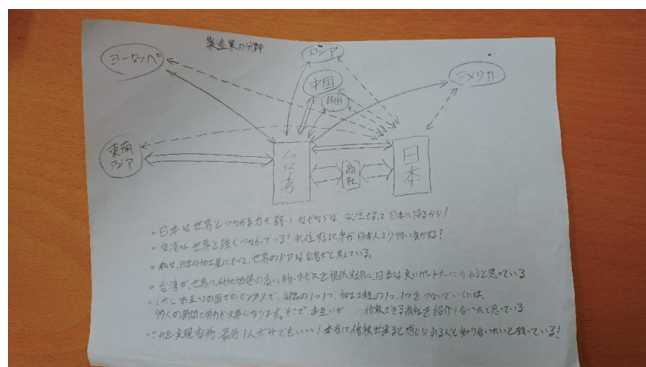 製造業の分野
ヨーロッパ
ロシア
中国
アメリカ
東南
アジア
台湾
商社
日本
・日本は世界とつながる力が弱い なぜならば、永住せずに日本に帰るから!
・台湾は世界と強くつながっている! 永住する比率が日本人より
・私は、日本の加工屋にとって、世界のドアは台湾だと考えている。
・台湾が、世界に付加価値の高い物・サービスを提供する時に、日本は良いパートナーになれると思っている
・しかしお互いの国でのビジネスで、部品の1つ1つ、加工工程の1つ1つをつないでいくには、
多くの時間と労力が必要になります。そこで お互いが 信頼できる会社を紹介し合いたと思っている
・これを実現する為、最初1人だけでもいい! 本当に信頼出来ると感じられる人と知り合いたいと願っている!